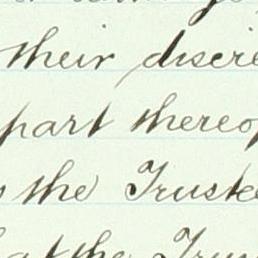 their discre
part thereof
the Truste
at the Trus